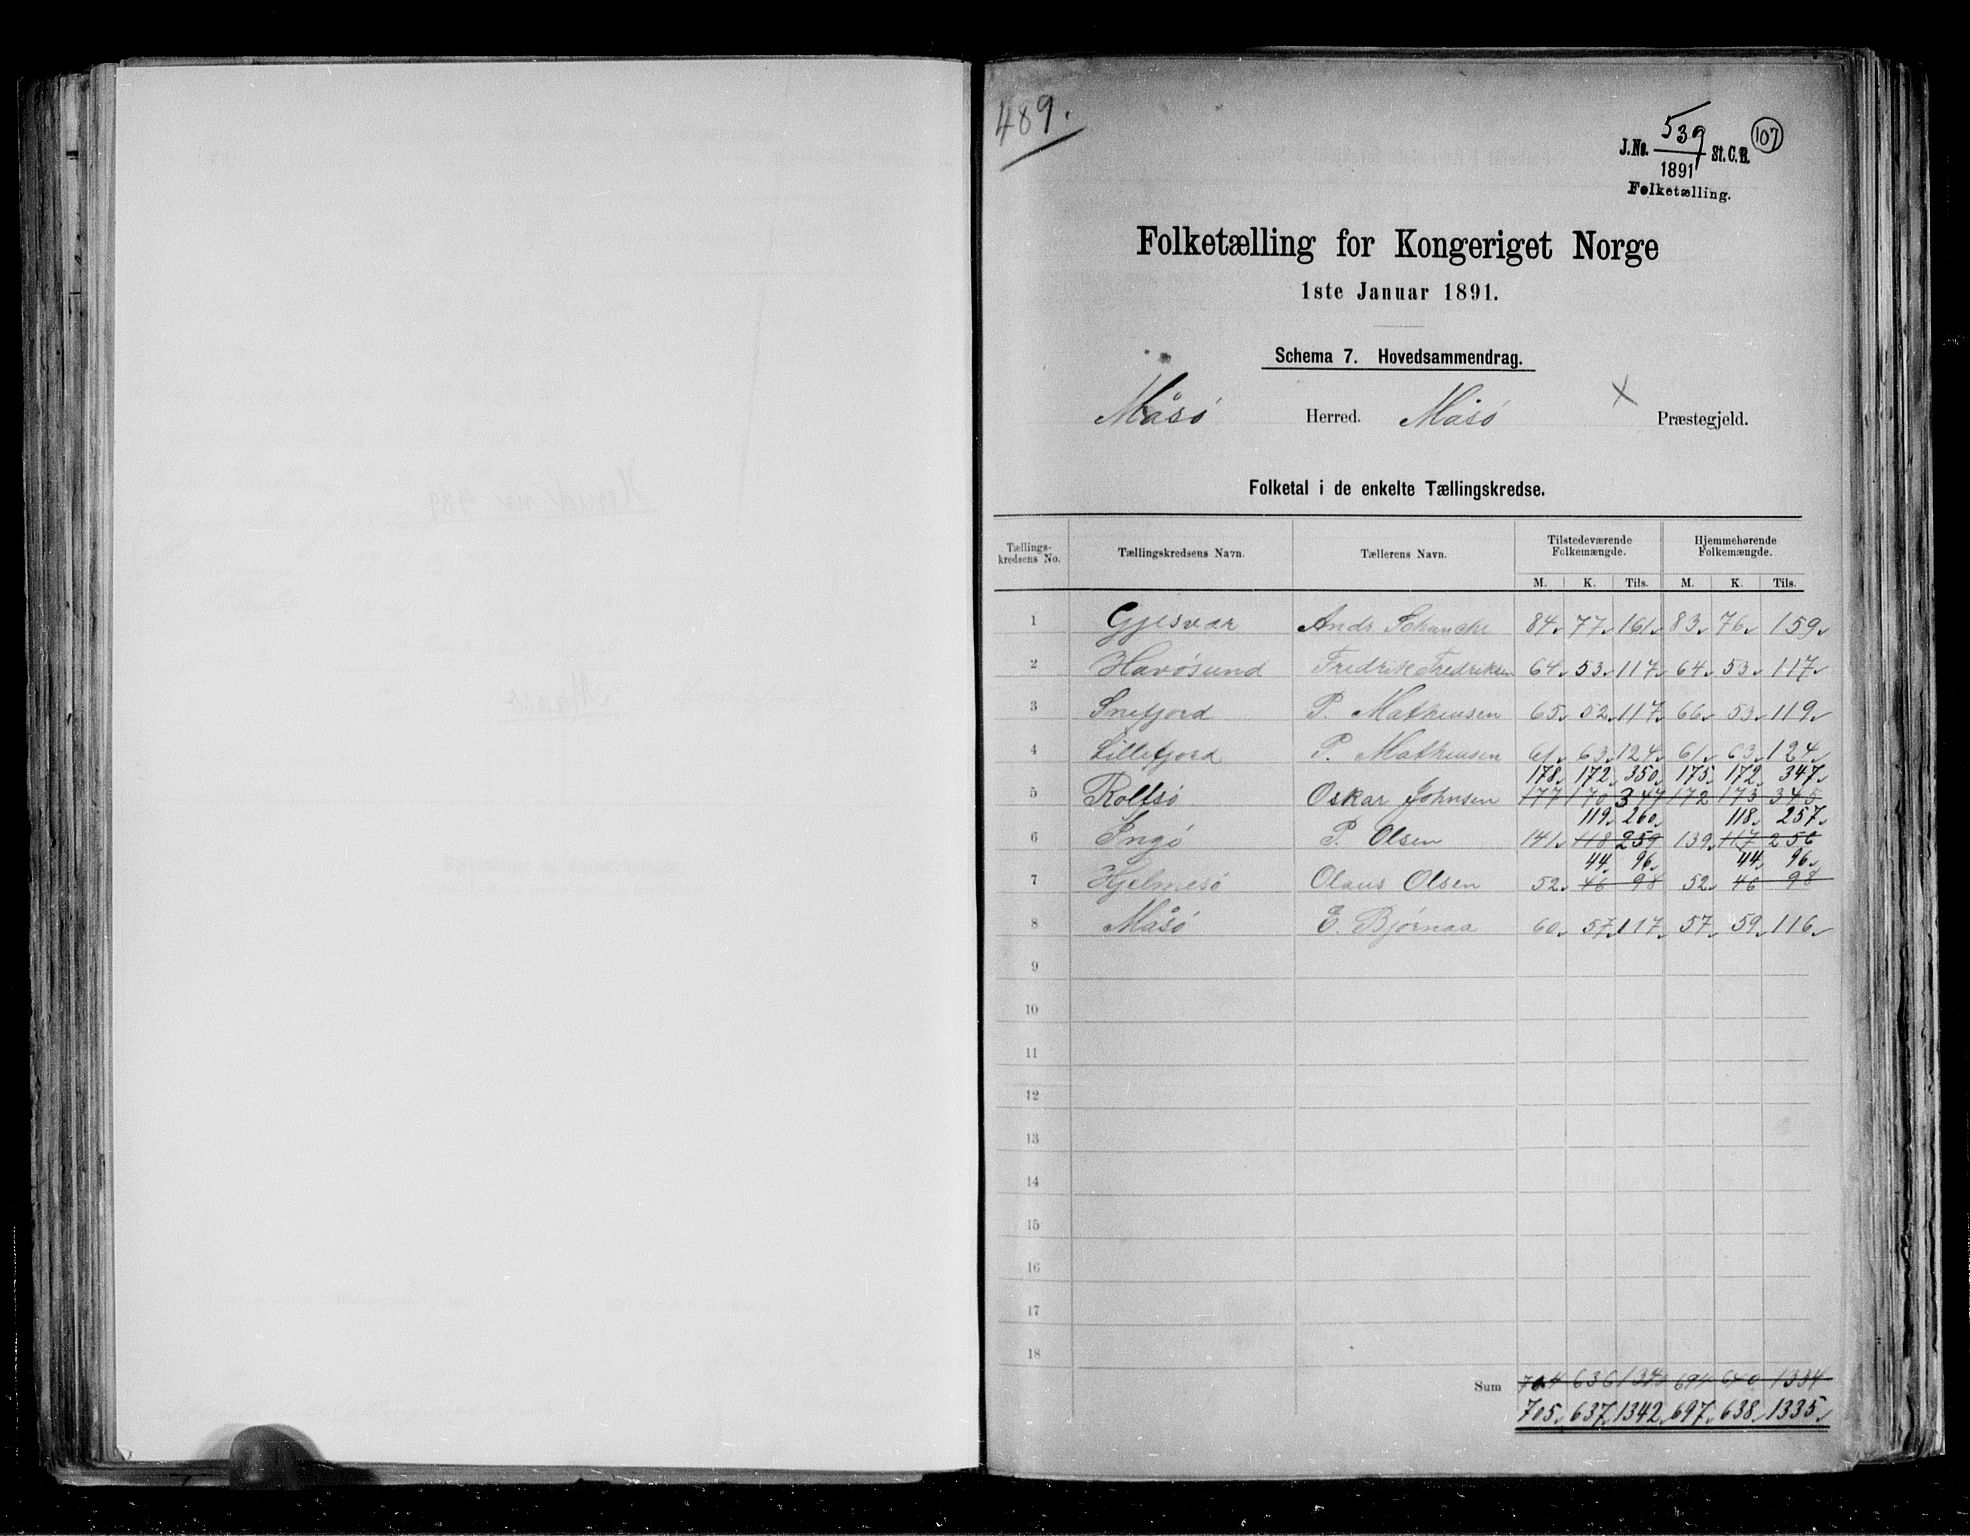 489.
J.No. 539 St. C. B. 107
1891
Folketælling.
Folketælling for Kongeriget Norge
1ste Januar 1891.
Schema 7. Hovedsammendrag.
Måsø Herred. Måsø Præstegjeld.
Folketal i de enkelte Tællingskredse.
Tællings-kredsens No. Tællingskredsens Navn. Tællerens Navn. Tilstedeværende Folkemængde. Hjemmehørende Folkemængde.
M. K. Tils. M. K. Tils.
1 Gjesvær Andr Schanche 84 77 161 83 76 159
2 Havøsund Fredrik Fredriksen 64 53 117 64 53 117
3 Snefjord P. Mathiusen 65 52 117 66 53 119
4 Lillefjord P. Mathiusen 61 63 124 61 63 124
178 172 350 175 172 347
5 Rolfsø Oskar Johnsen 177 170 347 172 173 345
119 260 118 257
6 Ingø P. Olsen 141 118 259 139 117 256
44 96 44 96
7 Hjelmesø Olaus Olsen 52 46 98 52 46 98
8 Måsø E. Bjørnaa 60 57 117 57 59 116
9
10
11
12
13
14
15
16
17
18
Sum 704 636 1340 694 640 1334
705 637 1342 697 638 1335